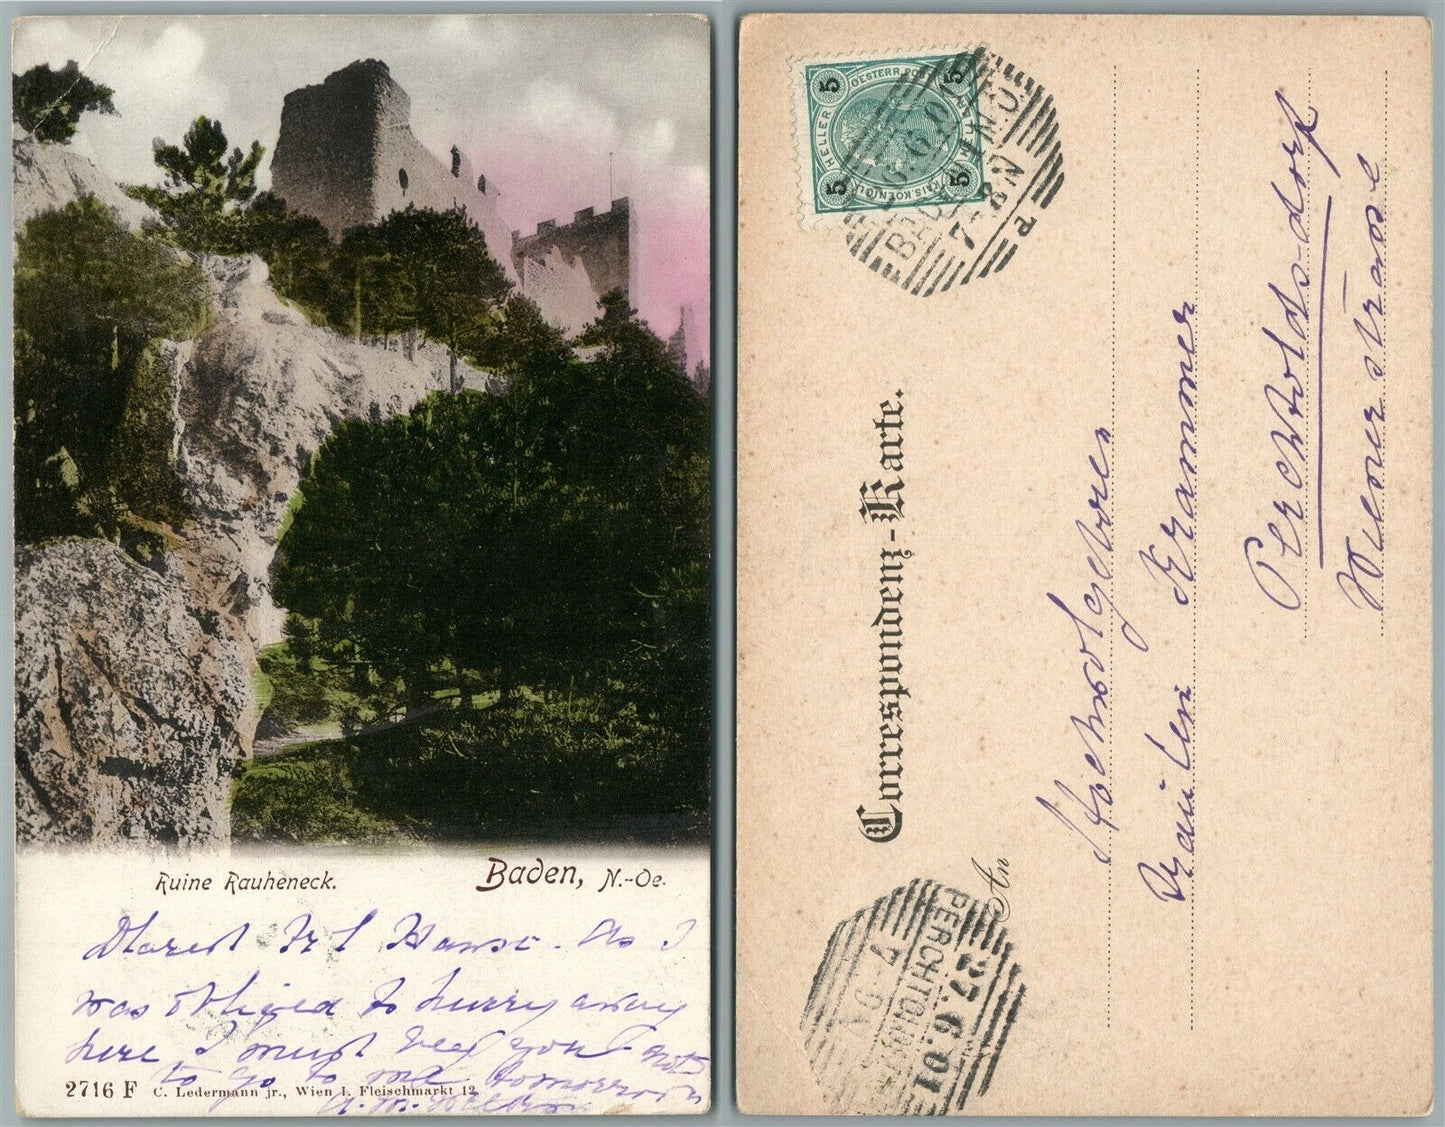 Ruine Rauheneck.
Baden, N.-Oe.
Dearest Frl Hansi. As I
was obliged to hurry away
here I must beg you not
to go to me tomorrow
2716 F C. Ledermann jr., Wien I. Fleischmarkt 12.
5 5
OESTERR. POST
HELLER
5 5
BADEN
7-8 N
Correspondenz-Karte.
An
Hochwolgeboren
Fräulein Krammer
Perchtoldsdorf
Wienerstrasse
PERCHTOLDSDORF
27.6.01
7-